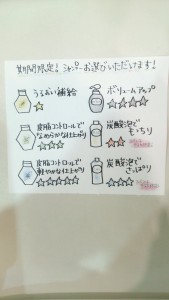 期間限定！シャンプーお選びいただけます！
うるおい補給
ボリュームアップ
皮脂コントロールで
なめらかな仕上がり
炭酸泡で
もっちり
皮脂コントロールで
軽やかな仕上がり
炭酸泡で
さっぱり